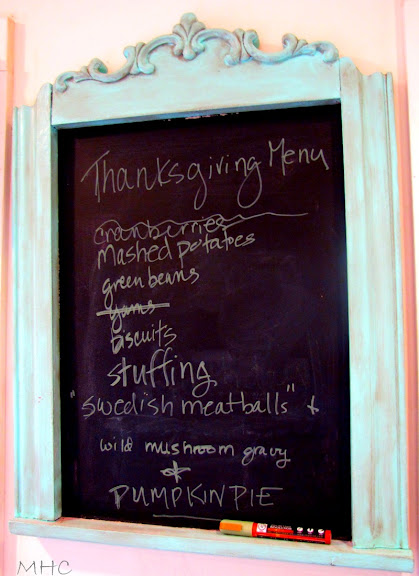 Thanksgiving Menu
cranberries
Mashed potatoes
green beans
yams
biscuits
stuffing
"Swedish meatballs" &
wild mushroom gravy
&
PUMPKIN PIE
MHC